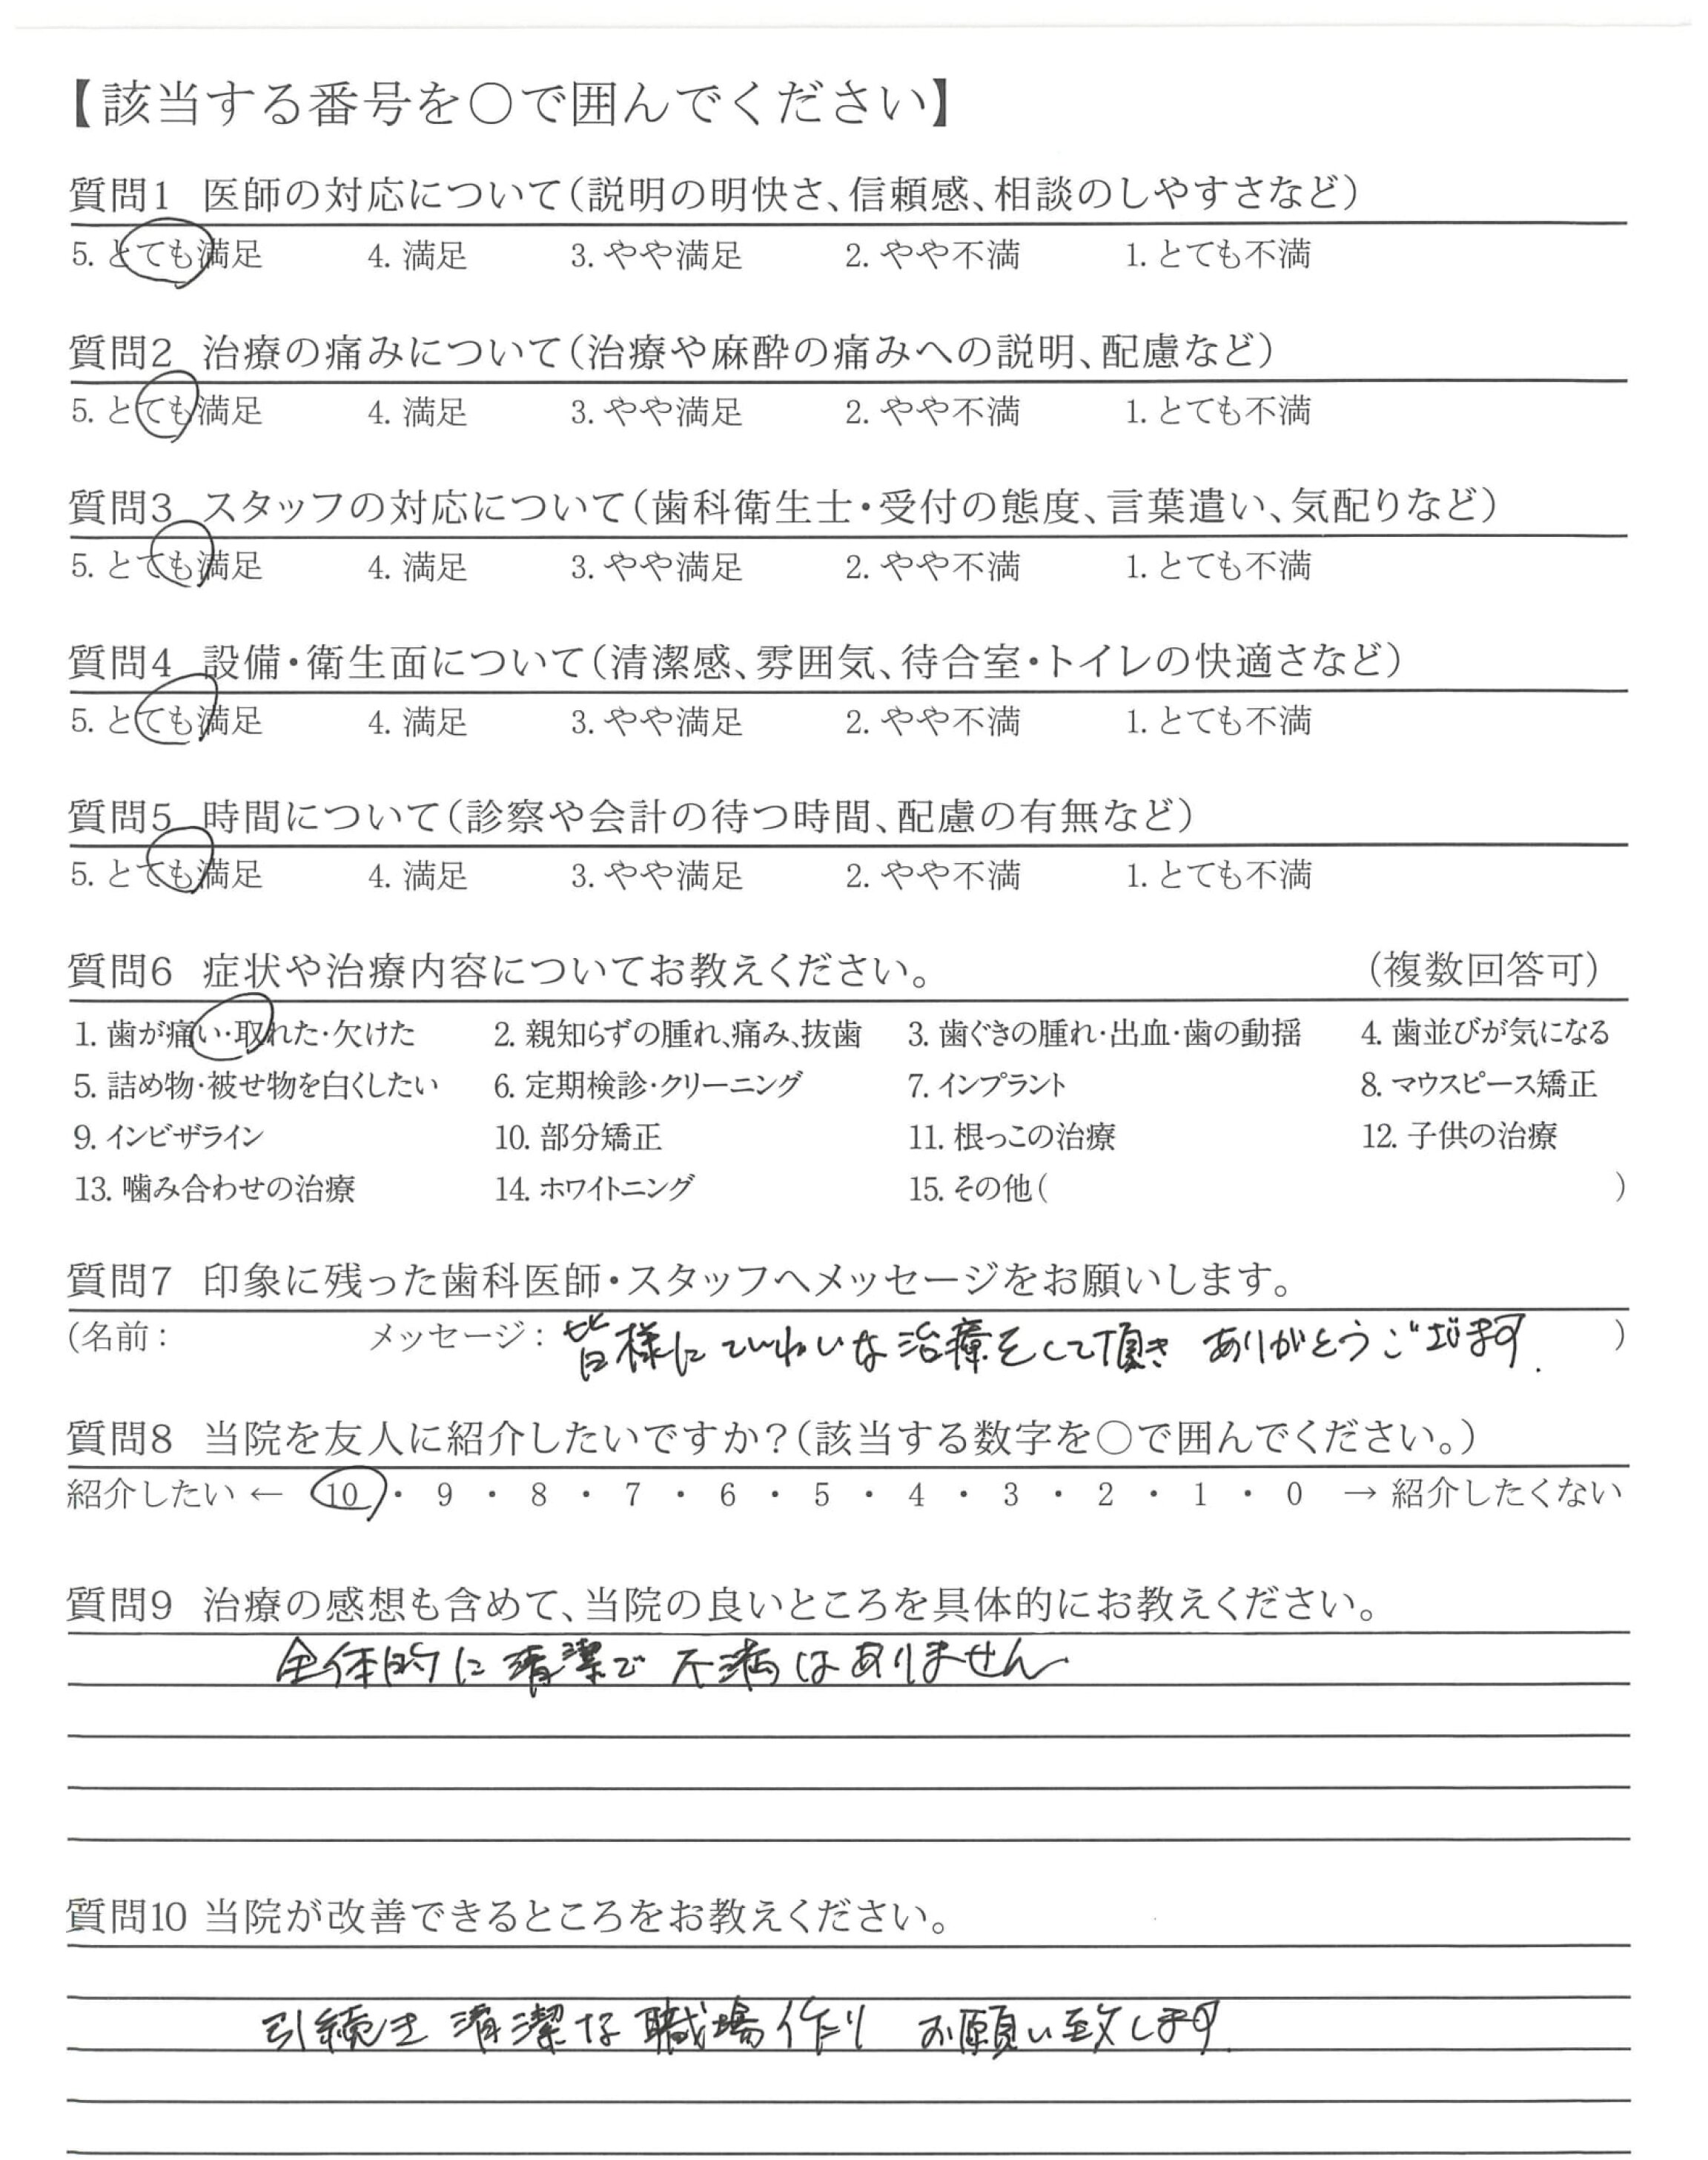 【該当する番号を○で囲んでください】
質問1 医師の対応について(説明の明快さ、信頼感、相談のしやすさなど)
5. とても満足 4. 満足 3. やや満足 2. やや不満 1. とても不満
質問2 治療の痛みについて(治療や麻酔の痛みへの説明、配慮など)
5. とても満足 4. 満足 3. やや満足 2. やや不満 1. とても不満
質問3 スタッフの対応について(歯科衛生士・受付の態度、言葉遣い、気配りなど)
5. とても満足 4. 満足 3. やや満足 2. やや不満 1. とても不満
質問4 設備・衛生面について(清潔感、雰囲気、待合室・トイレの快適さなど)
5. とても満足 4. 満足 3. やや満足 2. やや不満 1. とても不満
質問5 時間について(診察や会計の待つ時間、配慮の有無など)
5. とても満足 4. 満足 3. やや満足 2. やや不満 1. とても不満
質問6 症状や治療内容についてお教えください。 (複数回答可)
1. 歯が痛い・取れた・欠けた 2. 親知らずの腫れ、痛み、抜歯 3. 歯ぐきの腫れ・出血・歯の動揺 4. 歯並びが気になる
5. 詰め物・被せ物を白くしたい 6. 定期検診・クリーニング 7. インプラント 8. マウスピース矯正
9. インビザライン 10. 部分矯正 11. 根っこの治療 12. 子供の治療
13. 噛み合わせの治療 14. ホワイトニング 15. その他( )
質問7 印象に残った歯科医師・スタッフへメッセージをお願いします。
(名前: メッセージ: 皆様にていねいな治療をして頂き ありがとうございます. )
質問8 当院を友人に紹介したいですか?(該当する数字を○で囲んでください。)
紹介したい ← 10 ・ 9 ・ 8 ・ 7 ・ 6 ・ 5 ・ 4 ・ 3 ・ 2 ・ 1 ・ 0 → 紹介したくない
質問9 治療の感想も含めて、当院の良いところを具体的にお教えください。
全体的に清潔で 不満はありません
質問10 当院が改善できるところをお教えください。
引続き 清潔な 職場作り お願い致します.